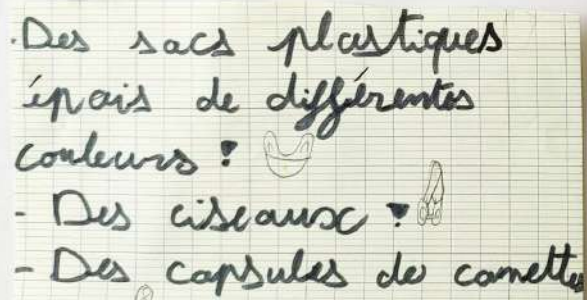 .Des sacs plastiques
épais de différentes
couleurs !
- Des ciseaux !
- Des capsules de canette